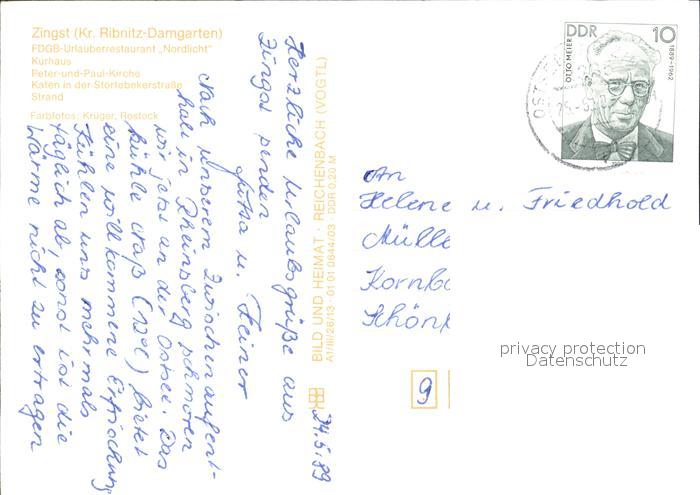 Zingst (Kr. Ribnitz-Damgarten)
FDGB-Urlauberrestaurant „Nordlicht"
Kurhaus
Peter-und-Paul-Kirche
Katen in der Störtebekerstraße
Strand
Farbfotos: Krüger, Rostock
24.5.89
Herzliche Urlaubsgrüße aus
Zingst senden
Jutta u. Heiner
Nach unserem Zwischenaufent-
halt in Rheinsberg schmoren
wir jetzt an der Ostsee. Das
kühle Naß (13°C) bietet
eine willkommene Erfrischung
Kühlen uns mehrmals
täglich ab, sonst ist die
Wärme nicht zu ertragen
BILD UND HEIMAT · REICHENBACH (VOGTL)
A1/III/26/13 · 01 01 0644/03 · DDR 0,20 M
DDR 10
OTTO MEIER
1889-1962
OST
An
Helene u. Friedhold
Mülle
Kornb
Schön
9
privacy protection
Datenschutz